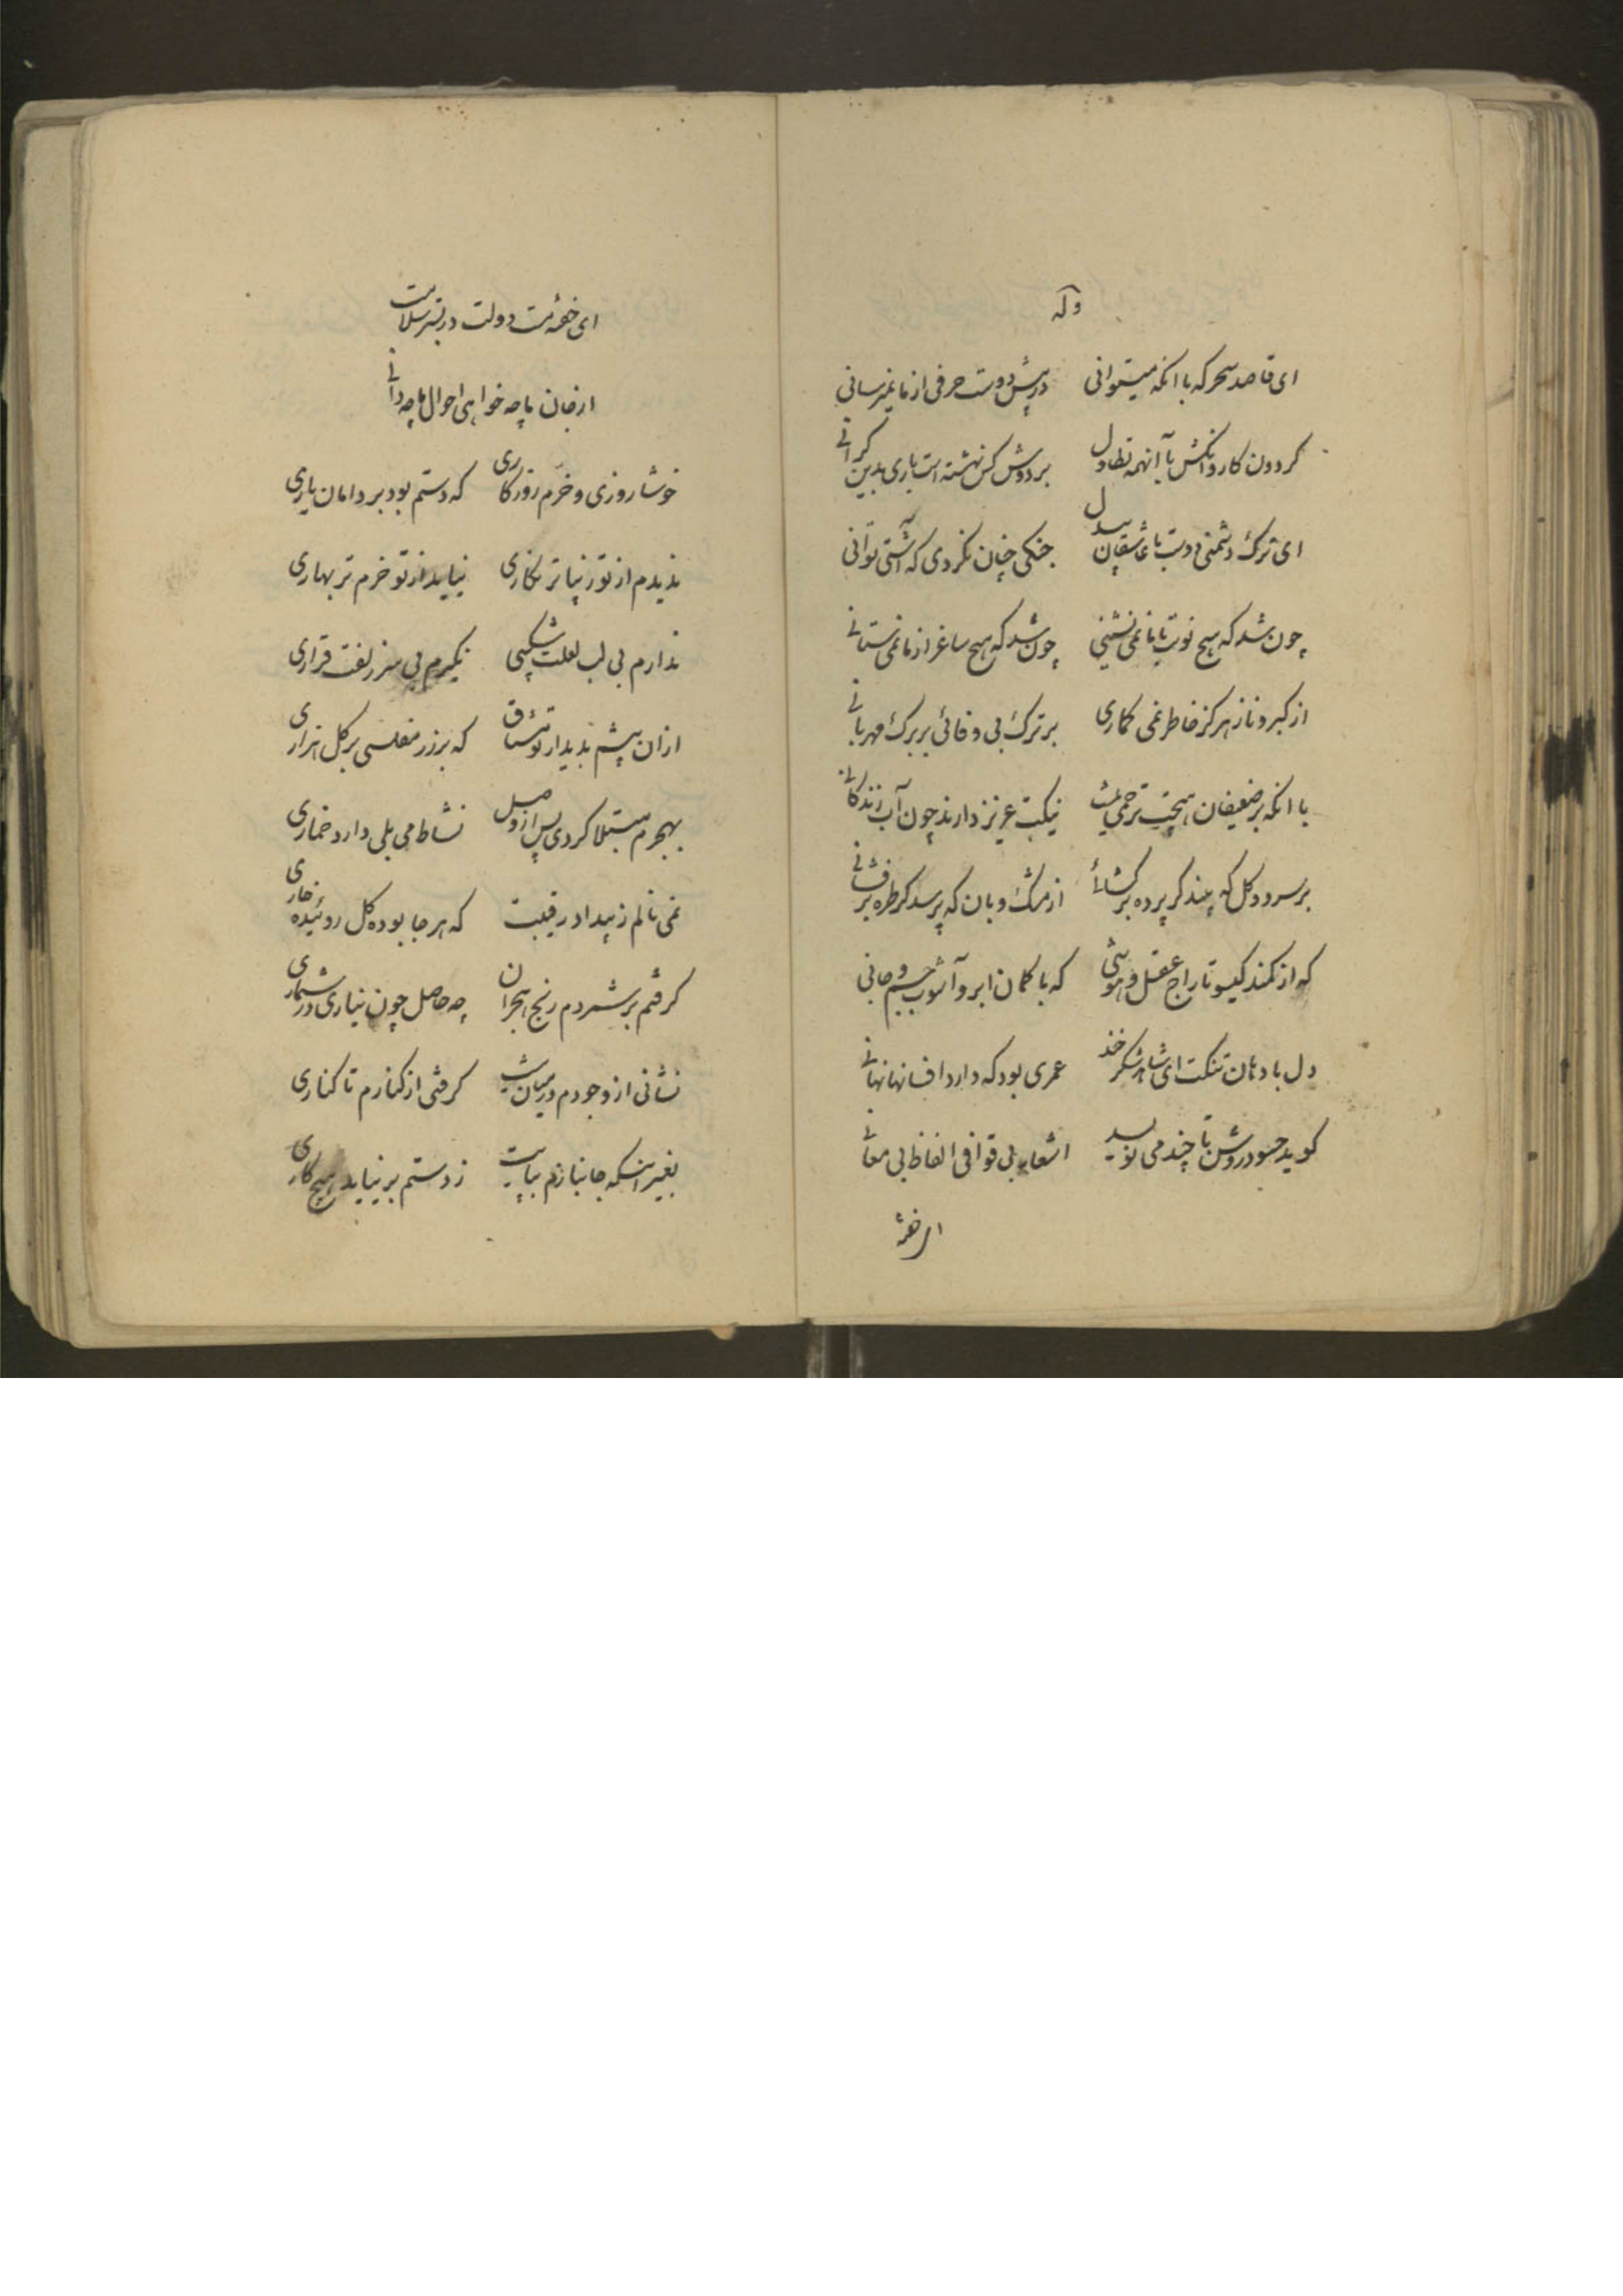 وله
ای قاصد سحر که با انکه میتوانی در پیش دوست حرفی از ما نمیرسانی
کردون کاروانکش با آنهمه تطاول بر دوش کس نهشته است باری بدین کرانی
ای ترک دشمنی دوست با عاشقان بیدل جنکی چنان نکردی که آشتی توانی
چون شد که هیچ نوبت با ما نمی نشینی چون شد که هیچ ساغر از ما نمی ستانی
از کبر و ناز هرکز خاطر نمی کماری بر ترک بی وفائی بر برک مهربانی
با انکه بر ضعیفان هیچت ترحمی نیست نیکت عزیز دارند چون آب زندکانی
بر سرو و کل که بیند کر پرده برکشائی از مشک و بان که پرسد کر طره برفشانی
که از کمند کیسو تاراج عقل و هوشی که با کمان ابرو آشوب جسم و جانی
دل با دهان تنکت ای شاهد شکرخند عمری بود که دارد افسانها نهانی
کوید حسود درویش تا چند می نویسد اشعار بی قوافی الفاظ بی معانی
ای خفته
ای خفته مست دولت در بستر سلامت
از جان ما چه خواهی احوال ما چه دانی
خوشا روزی و خرم روزکاری که دستم بود بر دامان یاری
ندیدم از تو زیباتر نکاری نیاید از تو خرم تر بهاری
ندارم بی لب لعلت شکیبی نکیرم بی سر زلفت قراری
ازان بیشم بدیدار تو مشتاق که بر زر مفلسی بر کل هزاری
بهجرم مبتلا کردی پس از وصل نشاط می بلی دارد خماری
نمی نالم ز بیداد رقیبت که هر جا بوده کل روئیده خاری
کرفتم بر شمردم رنج هجران چه حاصل چون نیاری در شماری
نشانی از وجودم در میان نیست کرفتی از کنارم تا کناری
بغیر اینکه جان بازم بپایت ز دستم بر نیاید هیچ کاری